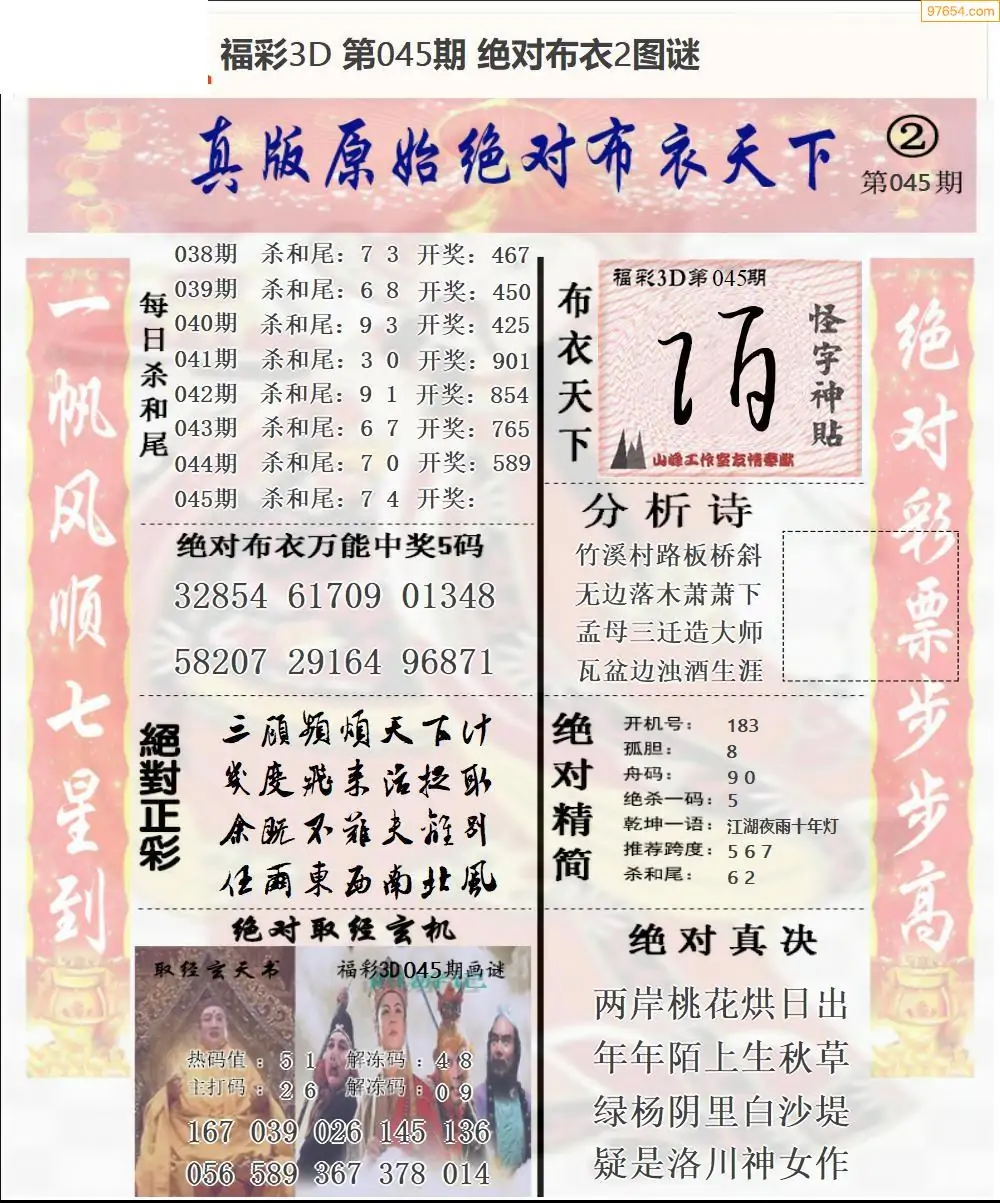 97654.com
福彩3D 第045期 绝对布衣2图谜
真版原始绝对布衣天下
②
第045期
一帆风顺七星到
每日杀和尾
038期 杀和尾: 7 3 开奖: 467
039期 杀和尾: 6 8 开奖: 450
040期 杀和尾: 9 3 开奖: 425
041期 杀和尾: 3 0 开奖: 901
042期 杀和尾: 9 1 开奖: 854
043期 杀和尾: 6 7 开奖: 765
044期 杀和尾: 7 0 开奖: 589
045期 杀和尾: 7 4 开奖:
绝对布衣万能中奖5码
32854 61709 01348
58207 29164 96871
絕對正彩
三顾频烦天下计
几度飛来活捉取
余既不难夫離别
任爾東西南北風
绝对取经玄机
取经玄天书
福彩3D045期画谜
热码值: 5 1 解冻码: 4 8
主打码: 2 6 解冻码: 0 9
167 039 026 145 136
056 589 367 378 014
布衣天下
福彩3D第045期
怪字神貼
山峰工作室友情奉献
分析诗
竹溪村路板桥斜
无边落木萧萧下
孟母三迁造大师
瓦盆边浊酒生涯
绝对精简
开机号: 183
孤胆: 8
舟码: 9 0
绝杀一码: 5
乾坤一语: 江湖夜雨十年灯
推荐跨度: 5 6 7
杀和尾: 6 2
绝对真决
两岸桃花烘日出
年年陌上生秋草
绿杨阴里白沙堤
疑是洛川神女作
绝对彩票步步高